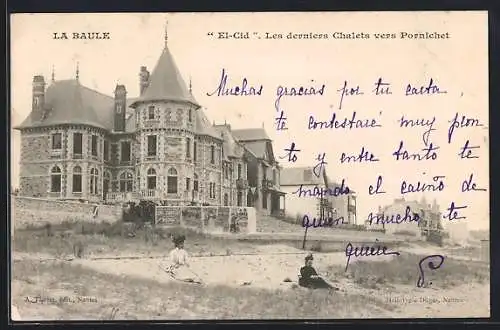 LA BAULE
" El-Cid ". Les derniers Chalets vers Pornichet
Muchas gracias por tu carta
te contestaré muy pron
to y entre tanto te
mando el cariño de
que mucho te
quiere P
A. édit., Nantes
Héliotypie Dugas, Nantes